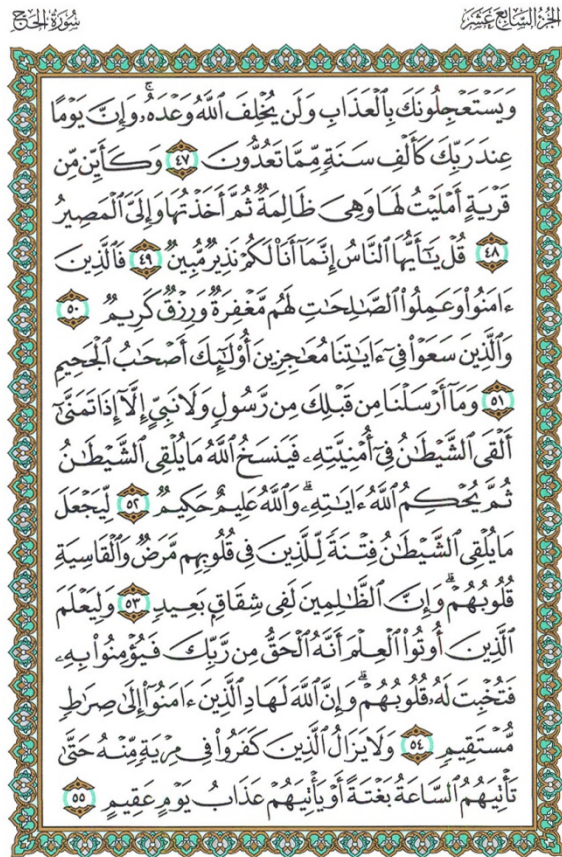 الجزء السابع عشر
سورة الحج
وَيَسْتَعْجِلُونَكَ بِٱلْعَذَابِ وَلَن يُخْلِفَ ٱللَّهُ وَعْدَهُۥۚ وَإِنَّ يَوْمًا
عِندَ رَبِّكَ كَأَلْفِ سَنَةٍ مِّمَّا تَعُدُّونَ ٤٧ وَكَأَيِّن مِّن
قَرْيَةٍ أَمْلَيْتُ لَهَا وَهِىَ ظَالِمَةٌ ثُمَّ أَخَذْتُهَا وَإِلَىَّ ٱلْمَصِيرُ
٤٨ قُلْ يَٰٓأَيُّهَا ٱلنَّاسُ إِنَّمَآ أَنَا۠ لَكُمْ نَذِيرٌ مُّبِينٌ ٤٩ فَٱلَّذِينَ
ءَامَنُوا۟ وَعَمِلُوا۟ ٱلصَّٰلِحَٰتِ لَهُم مَّغْفِرَةٌ وَرِزْقٌ كَرِيمٌ ٥٠
وَٱلَّذِينَ سَعَوْا۟ فِىٓ ءَايَٰتِنَا مُعَٰجِزِينَ أُو۟لَٰٓئِكَ أَصْحَٰبُ ٱلْجَحِيمِ
٥١ وَمَآ أَرْسَلْنَا مِن قَبْلِكَ مِن رَّسُولٍ وَلَا نَبِىٍّ إِلَّآ إِذَا تَمَنَّىٰٓ
أَلْقَى ٱلشَّيْطَٰنُ فِىٓ أُمْنِيَّتِهِۦ فَيَنسَخُ ٱللَّهُ مَا يُلْقِى ٱلشَّيْطَٰنُ
ثُمَّ يُحْكِمُ ٱللَّهُ ءَايَٰتِهِۦۗ وَٱللَّهُ عَلِيمٌ حَكِيمٌ ٥٢ لِّيَجْعَلَ
مَا يُلْقِى ٱلشَّيْطَٰنُ فِتْنَةً لِّلَّذِينَ فِى قُلُوبِهِم مَّرَضٌ وَٱلْقَاسِيَةِ
قُلُوبُهُمْۗ وَإِنَّ ٱلظَّٰلِمِينَ لَفِى شِقَاقٍۭ بَعِيدٍ ٥٣ وَلِيَعْلَمَ
ٱلَّذِينَ أُوتُوا۟ ٱلْعِلْمَ أَنَّهُ ٱلْحَقُّ مِن رَّبِّكَ فَيُؤْمِنُوا۟ بِهِۦ
فَتُخْبِتَ لَهُۥ قُلُوبُهُمْۗ وَإِنَّ ٱللَّهَ لَهَادِ ٱلَّذِينَ ءَامَنُوٓا۟ إِلَىٰ صِرَٰطٍ
مُّسْتَقِيمٍ ٥٤ وَلَا يَزَالُ ٱلَّذِينَ كَفَرُوا۟ فِى مِرْيَةٍ مِّنْهُ حَتَّىٰ
تَأْتِيَهُمُ ٱلسَّاعَةُ بَغْتَةً أَوْ يَأْتِيَهُمْ عَذَابُ يَوْمٍ عَقِيمٍ ٥٥